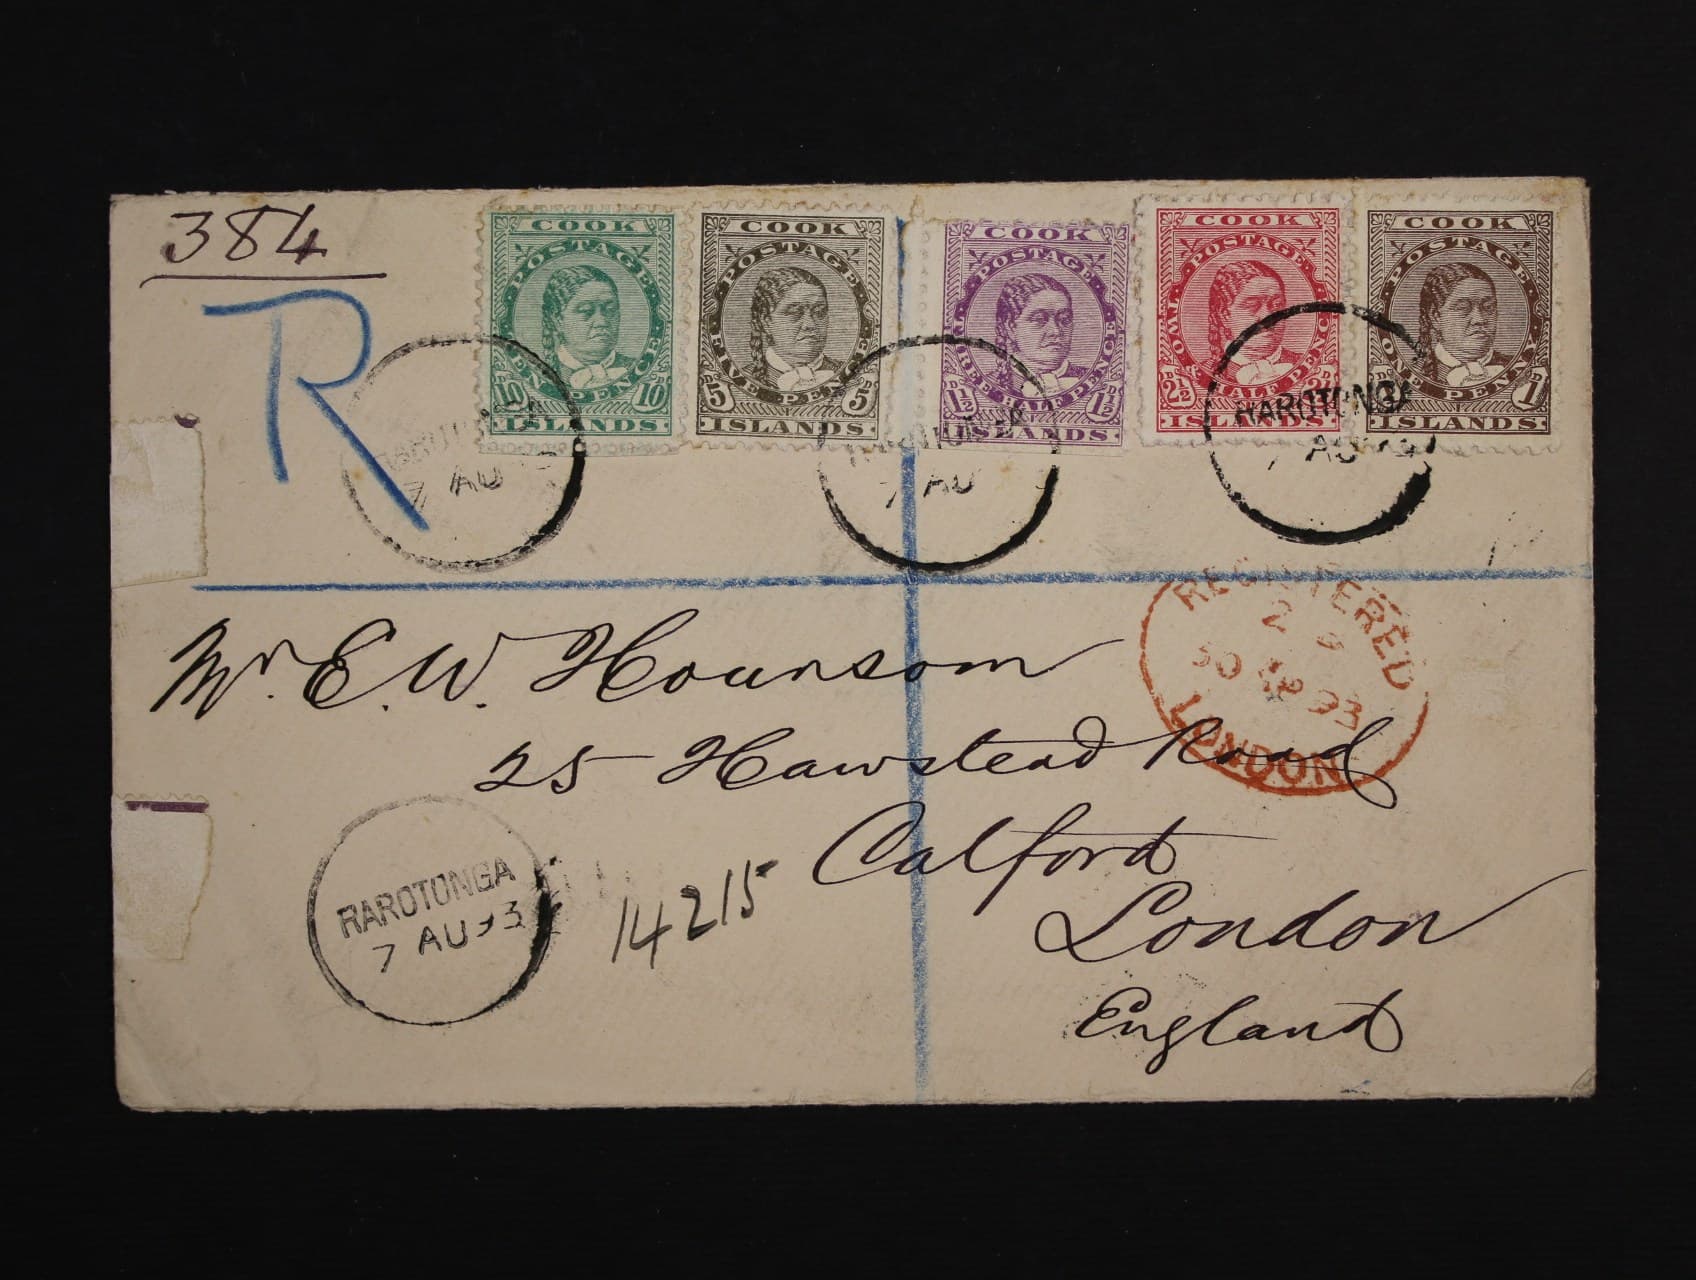 384
R
COOK
POSTAGE
TEN PENCE
10D 10D
ISLANDS
COOK
POSTAGE
FIVE PENCE
5D 5D
ISLANDS
COOK
POSTAGE
THREE HALF PENCE
1½D 1½D
ISLANDS
COOK
POSTAGE
TWO & HALF PENCE
2½D 2½D
ISLANDS
COOK
POSTAGE
ONE PENNY
1D 1
ISLANDS
RAROTONGA
7 AU
RAROTONGA
7 AU
RAROTONGA
7 AU
REGISTERED
30 93
LONDON
Mr. E. W. Hounsom
25 Hawstead Road
Calford
London
England
RAROTONGA
7 AU 93
14215